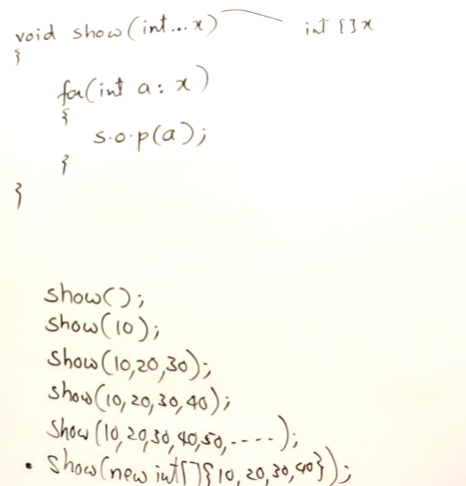 void show(int...x) int []x
{
for(int a: x)
{
s.o.p(a);
}
}
show();
show(10);
show(10,20,30);
show(10,20,30,40);
show(10,20,30,40,50,----);
• show(new int[]{10,20,30,40});